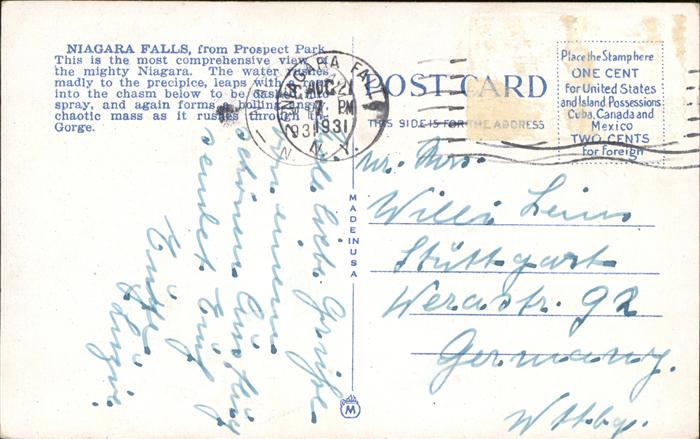 NIAGARA FALLS, from Prospect Park
This is the most comprehensive view of
the mighty Niagara. The water rushes
madly to the precipice, leaps with a roar
into the chasm below to be dashed into
spray, and again forms a boiling, angry,
chaotic mass as it rushes through the
Gorge.
NIAGARA FALLS
AUG 21
7 PM
1931
N. Y.
POST CARD
THIS SIDE IS FOR THE ADDRESS
Place the Stamp here
ONE CENT
For United States
and Island Possessions
Cuba, Canada and
Mexico
TWO CENTS
for Foreign
MADE IN USA
M
liebe Grüße
von einem
schönen Ausflug
sendet Euch
Eure
Mr. Mrs.
Willi
Stuttgart
Werastr. 92
Germany.
Wttbg.